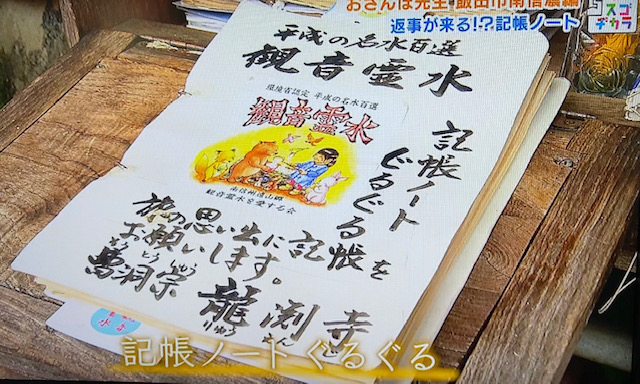 おさんぽ先生 飯田市南信濃編
返事が来る!?記帳ノート
スゴ
ヂカラ
平成の名水百選
観音霊水
環境省認定 平成の名水百選
観音霊水
南信州遠山郷
観音霊水を愛する会
記帳ノート
ぐるぐる帳
旅の思い出に記帳を
お願いします。
龍渕寺
記帳ノート ぐるぐる